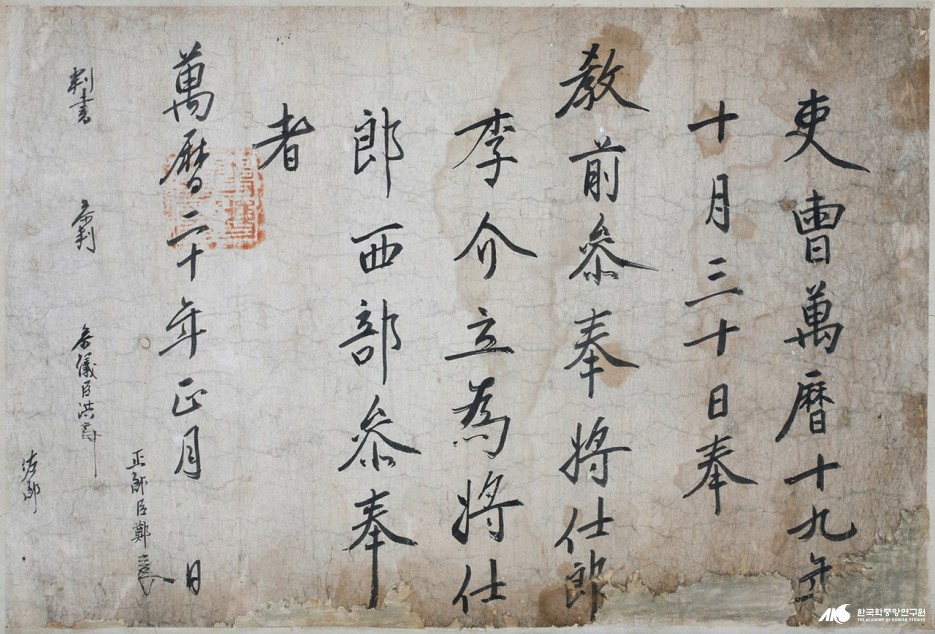 吏曹萬曆十九年
十月三十日奉
教前叅奉將仕郎
李介立為將仕
郎西部叅奉
者
萬曆二十年正月 日
判書 叅判 叅議臣洪
正郎臣鄭
佐郎
한국학중앙연구원
THE ACADEMY OF KOREAN STUDIES